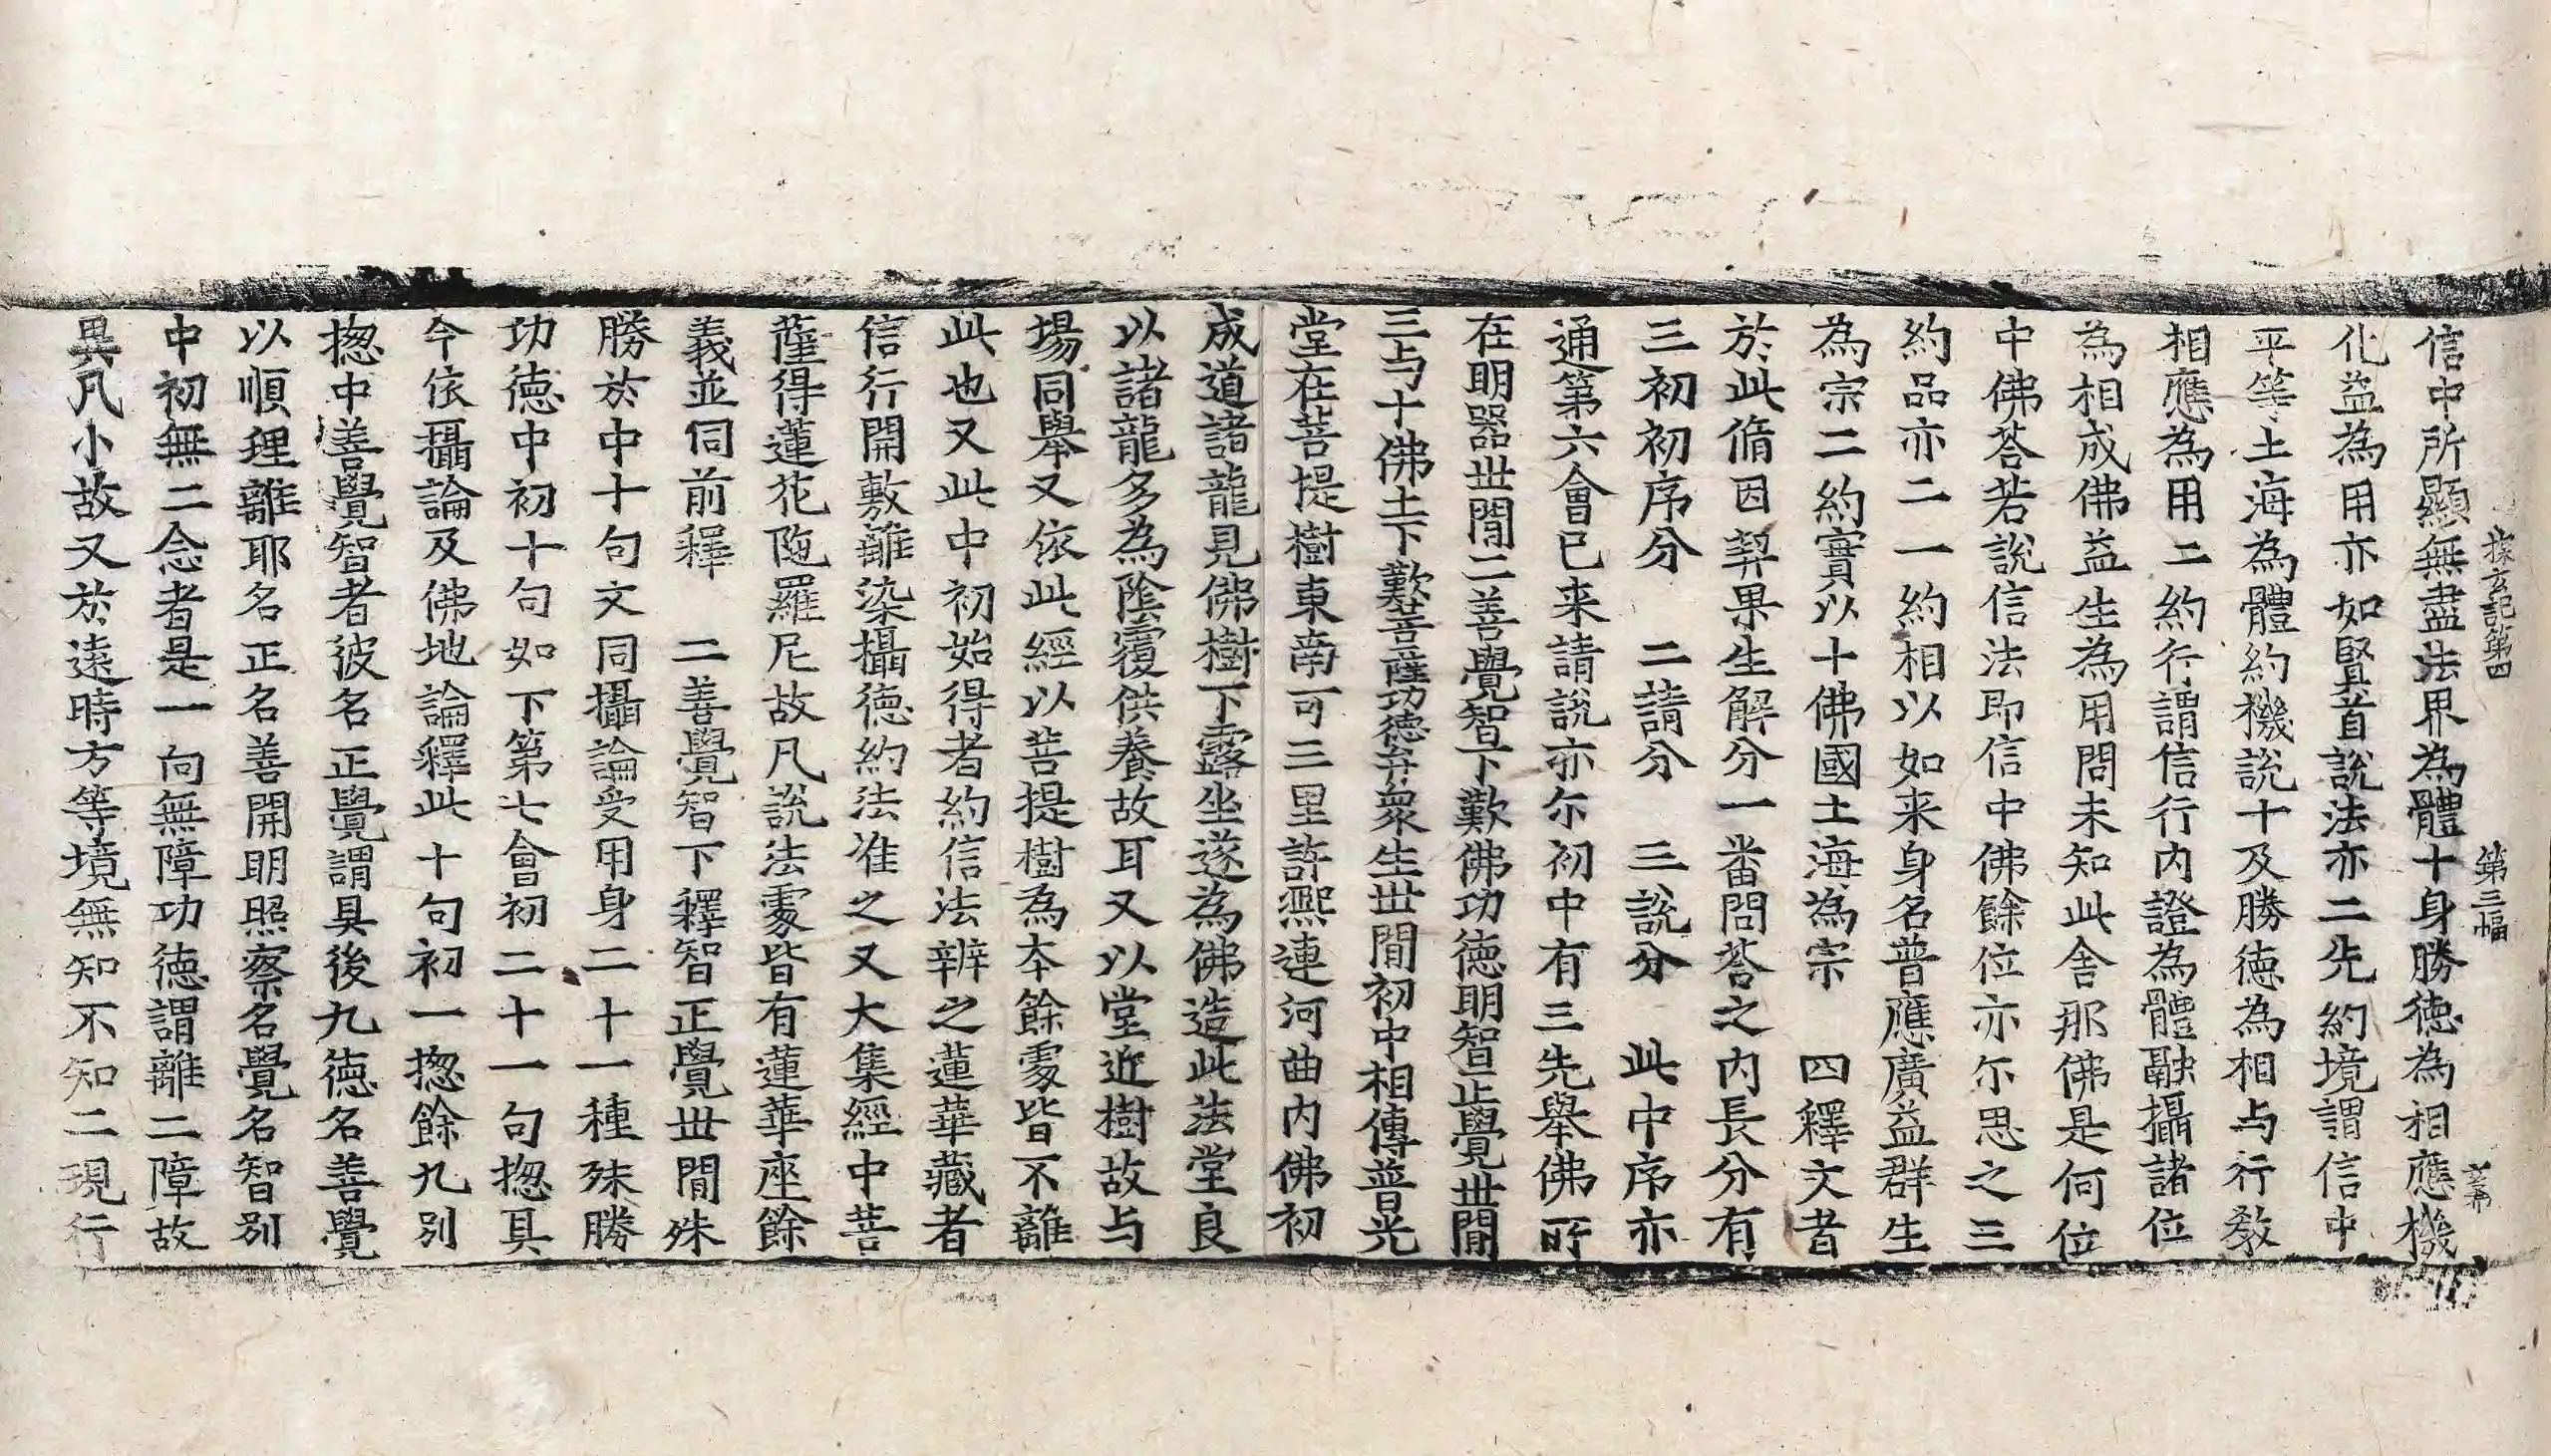 探玄記第四　第三幅
信中所顯無盡法界為體十身勝徳為相應機
化益為用亦如賢首說法亦二先約境謂信中
平等土海為體約機說十及勝徳為相与行教
相應為用二約行謂信行內證為體融攝諸位
為相成佛益生為用問未知此舍那佛是何位
中佛荅若說信法即信中佛餘位亦尒思之三
約品亦二一約相以如来身名普應廣益群生
為宗二約實以十佛國土海為宗　四釋文者
於此脩因契果生解分一番問荅之內長分有
三初初序分　二請分　三說分　此中序亦
通第六會已来請說亦尒初中有三先舉佛所
在明器世間二善覺智下歎佛功徳明智正覺世間
三与十佛土下歎菩薩功徳弁衆生世間初中相傳普光
堂在菩提樹東南可三里許熈連河曲内佛初
成道諸龍見佛樹下露坐遂為佛造此法堂良
以諸龍多為隂覆供養故耳又以堂近樹故与
場同舉又依此經以菩提樹為本餘䖏皆不離
此也又此中初始得者約信法辨之蓮華藏者
信行開敷離染攝徳約法准之又大集經中菩
薩得蓮花陁羅尼故凡說法䖏皆有蓮華座餘
義並同前釋　二善覺智下釋智正覺世間殊
勝於中十句文同攝論受用身二十一種殊勝
功徳中初十句如下第七會初二十一句揔具
今依攝論及佛地論釋此十句初一揔餘九別
揔中善覺智者彼名正覺謂具後九徳名善覺
以順理離耶名正名善開明照察名覺名智別
中初無二念者是一向無障功徳謂離二障故
異凡小故又於遠時方等境無知不知二現行